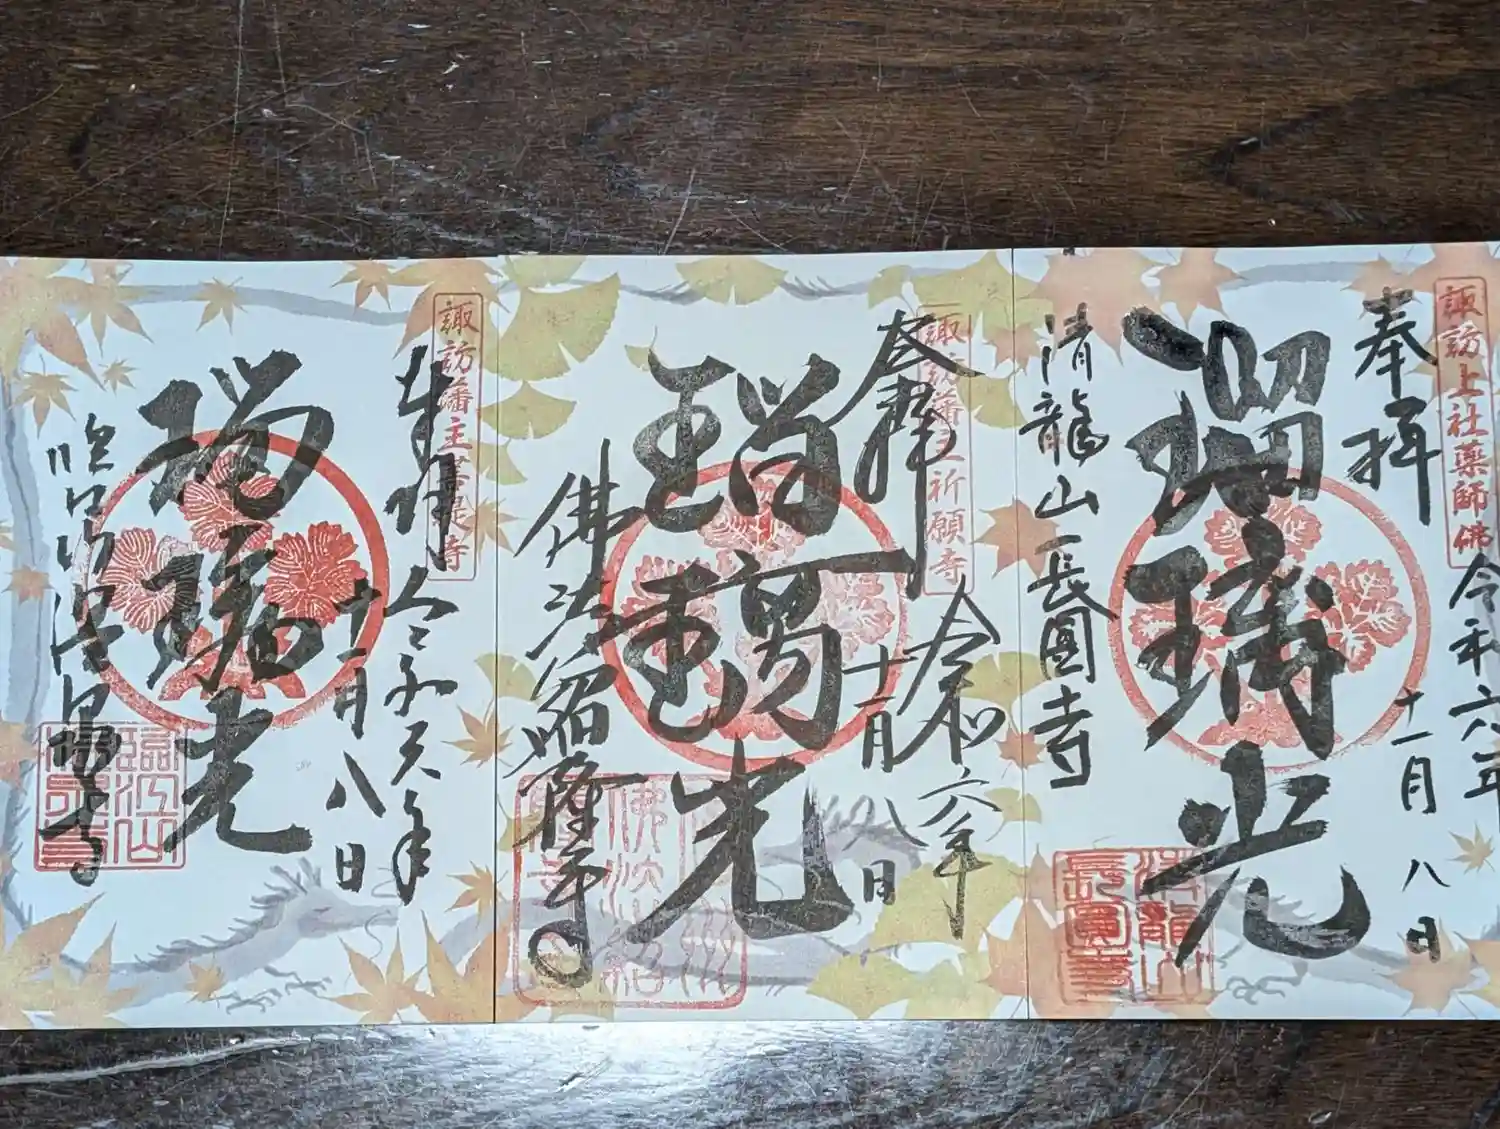 諏訪上社薬師佛
奉拝
令和六年
十一月
八日
瑠璃光
清龍山長圓寺
清龍山
長圓寺
奉拝
令和六年
十一月
八日
瑠璃光
佛法紹隆寺
諏訪藩主祈願寺
諏訪藩主菩提寺
奉拝
令和六年
十一月
八日
瑠璃光
臨江山
温泉寺